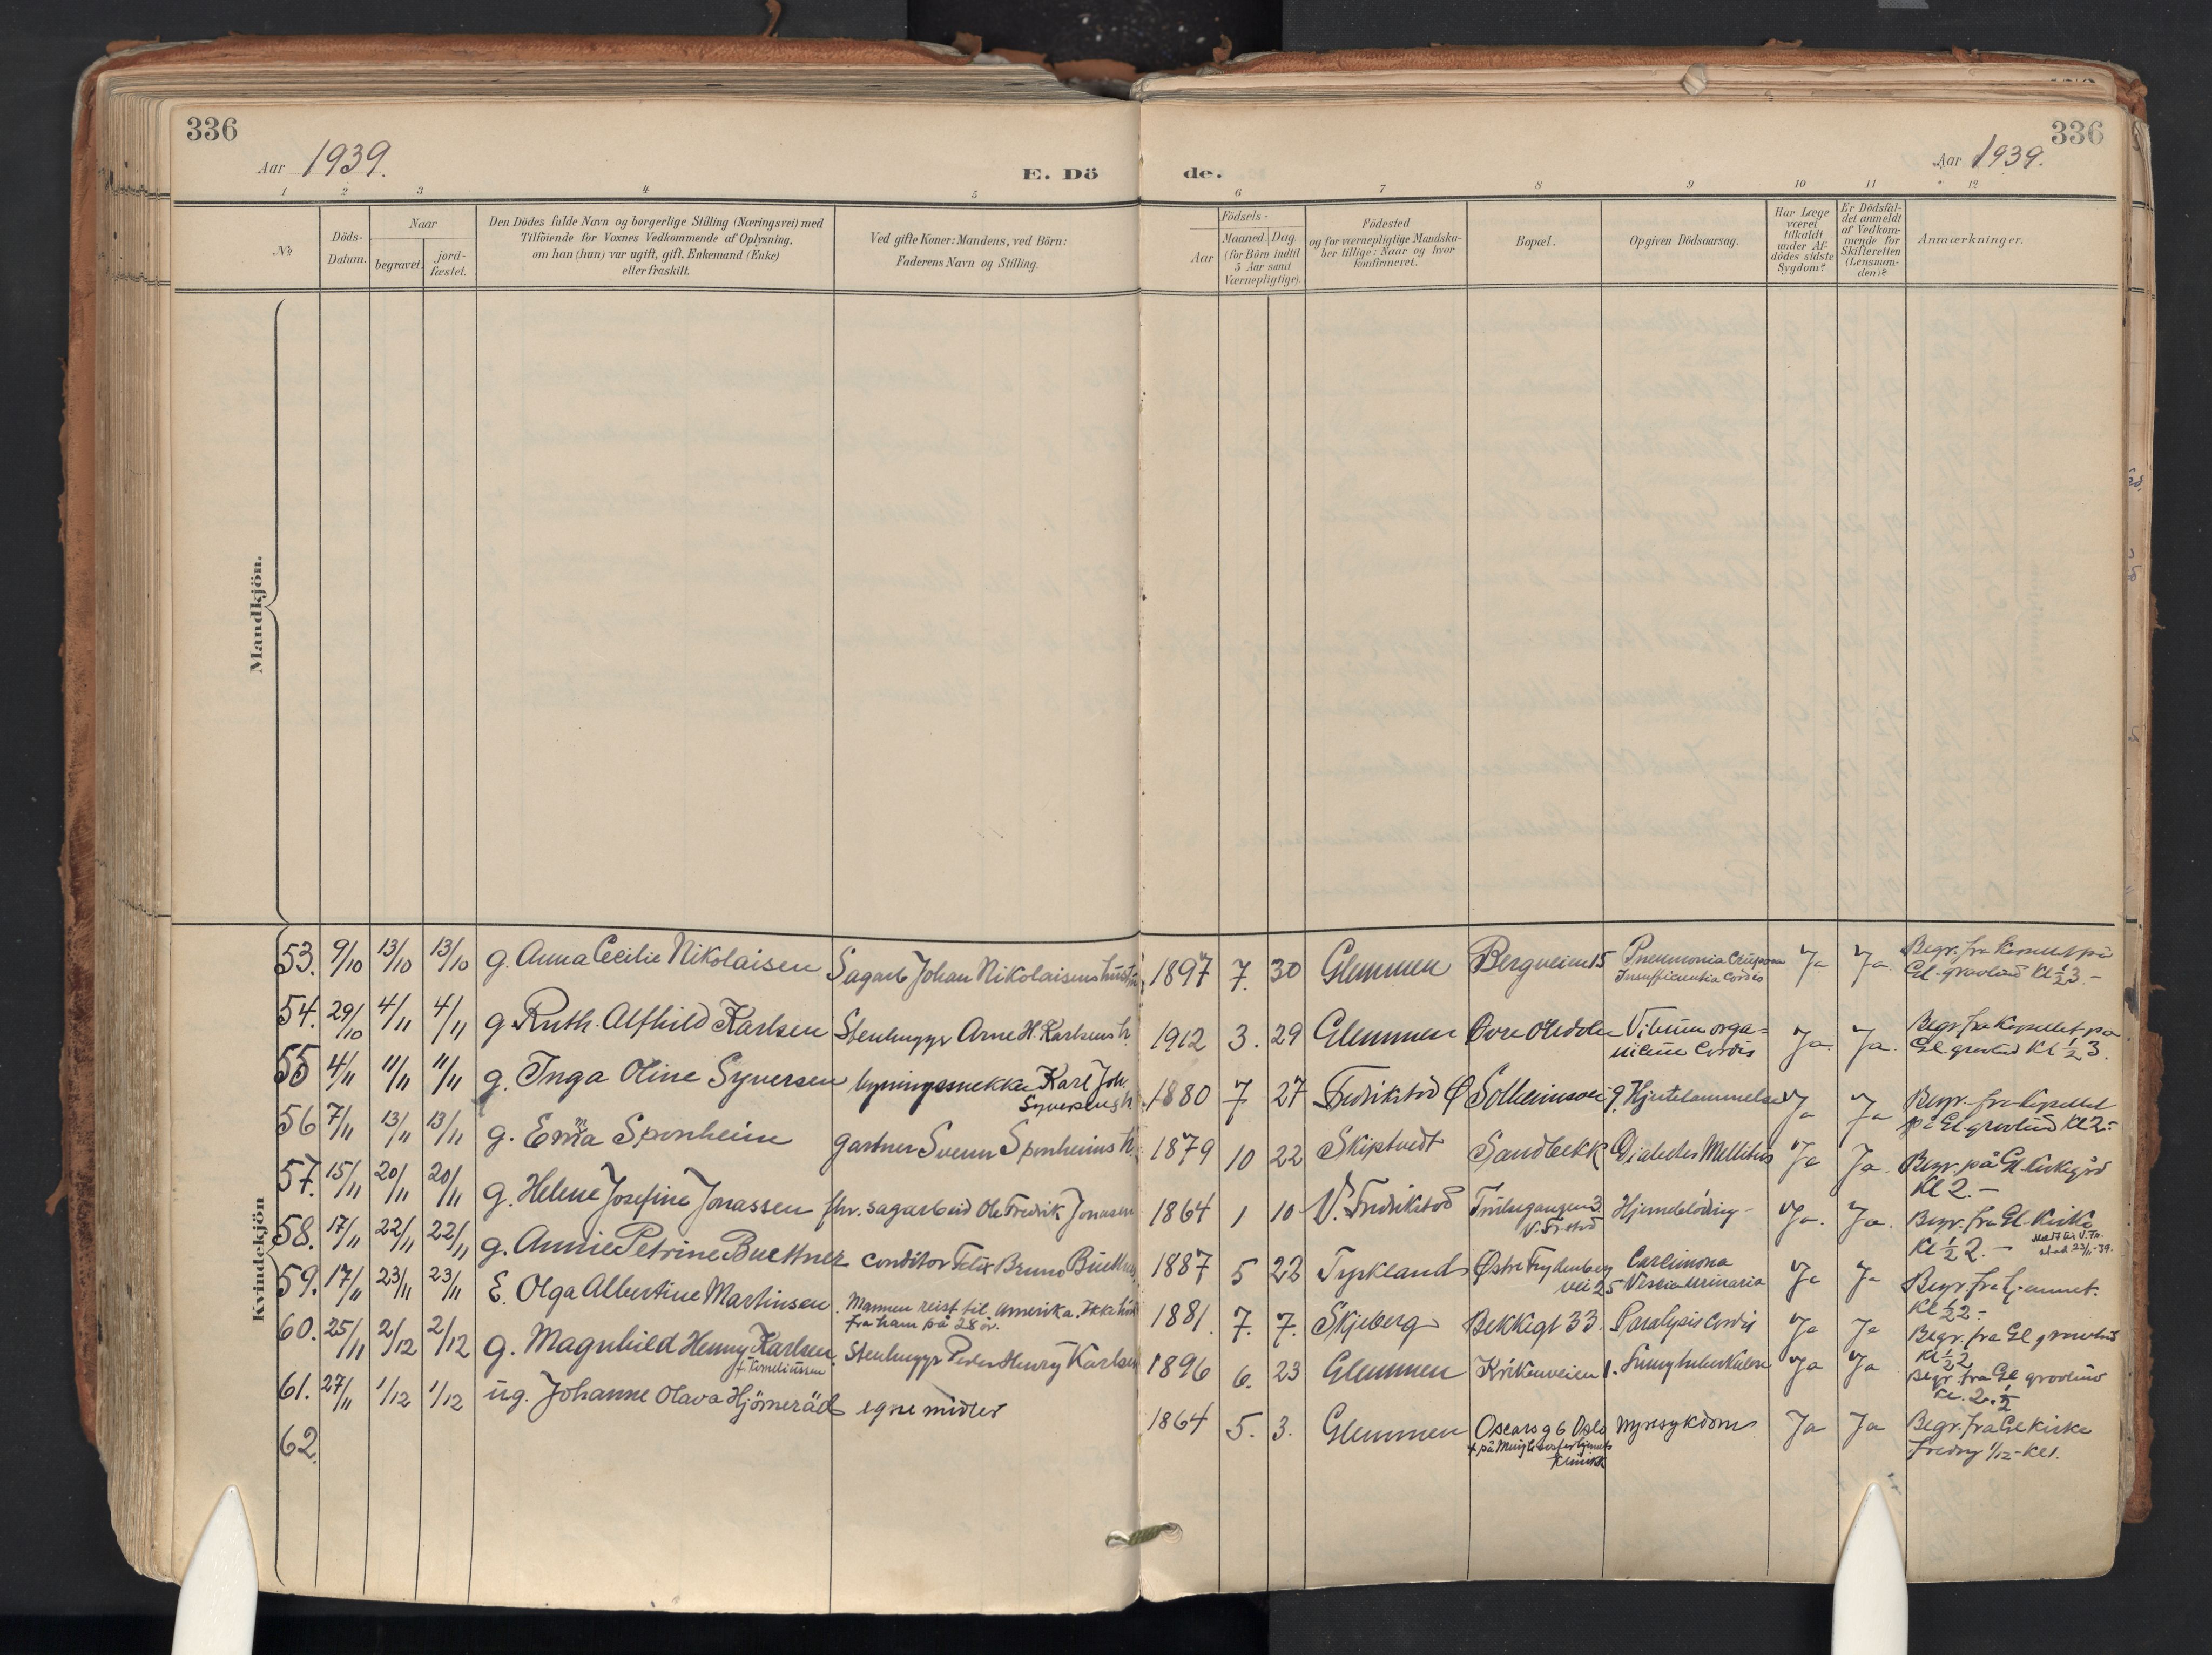 336
Aar 1939.
E. Dö
1 2 3 4 5
No
Döds-
Datum.
Naar
begravet.
jord-
fæstet.
Den Dödes fulde Navn og borgerlige Stilling (Næringsvei) med
Tilföiende for Voxnes Vedkommende af Oplysning,
om han (hun) var ugift, gift, Enkemand (Enke)
eller fraskilt.
Ved gifte Koner: Mandens, ved Börn:
Faderens Navn og Stilling.
Mandkjön.
Kvindekjön
53. 9/10 13/10 13/10 g. Anna Cecilie Nikolaisen Sagarb Johan Nikolaisens
54. 29/10 4/11 4/11 g. Ruth Alfhild Karlsen Stenhuggr Arne H. Karlsens h.
55 4/11 11/11 11/11 g. Inga Oline Syversen bygningssnekker Karl Joh.
Syversens h.
56 7/11 13/11 13/11 g. Emma Sponheim gartner Svenn Sponheims h.
57. 15/11 20/11 20/11 g. Helene Josefine Jonassen fhv. sagarbeid Ole Fredrik Jonasen
58. 17/11 22/11 22/11 g. Annie Petrine Buettner conditor Felix Bruno
59. 17/11 23/11 23/11 E. Olga Albertine Martinsen. Mannen reist til Amerika. Ikke
fra ham på 28 år.
60. 25/11 2/12 2/12 g. Magnhild Henny Karlsen Stenhuggr Peder Henry Karlsen
f. Corneliussen
61. 27/11 1/12 1/12 ug. Johanne Olava Hjörneröd egne midler
62.
336
Aar 1939.
de.
6 7 8 9 10 11 12
Aar
Födsels-
Maaned. Dag.
(for Börn indtil
5 Aar samt
Værnepligtige).
Födested
og for værnepligtige Mandska-
ber tillige: Naar og hvor
konfirmeret.
Bopæl.
Opgiven Dödsaarsag.
Har Læge
været
tilkaldt
under Af-
dödes sidste
Sygdom?
Er Dödsfal-
det anmeldt
af Vedkom-
mende for
Skifteretten
(Lensman-
den)?
Anmærkninger.
1897 7. 30 Glemmen Bergveien 15 Pneumonia Cruposa Ja Ja. Begr. fra på
Insufficientia Cordis Gl. gravlund Kl ½ 3.-
1912 3. 29 Glemmen Øvre Vitium orga- Ja. Ja. Begr. fra Kapellet på
nicum Cordis Gl gravlund Kl ½ 3.
1880 7 27 Fredrikstad Ø Solheimsvei 9. Hjertelammelse Ja Ja Begr. fra Kapellet
på Gl. gravlund Kl 2.-
1879 10 22 Skiptvedt Sandbekk Diabetes Mellitus Ja Ja. Begr. på Gl. kirkegård
Kl 2.-
1864 1 10 V. Fredrikstad Hjerneblödning- Ja. Ja. Begr. fra Gl. Kirke
V. Fr.stad Kl ½ 2.-
1887 5 22 Tyskland Østre Frydenberg Carcinoma Ja Ja Begr. fra hjemmet.
vei 25 Vesica urinaria Kl ½ 2-
1881. 7. 7. Skjeberg Bekkegt 33. Paralysis cordis Ja Ja Begr. fra Gl gravlund
Kl ½ 2
1896 6. 23 Glemmen Kråkeveien 1. Lungtuberkulose Ja Ja Begr. fra Gl gravlund
Kl. 2.½
1864 5. 3. Glemmen Oscarsg 6 Oslo Nyresykdom Ja Ja Begr. fra Gl Kirke
Klinikk Fredag 1/12 - Kl 1.